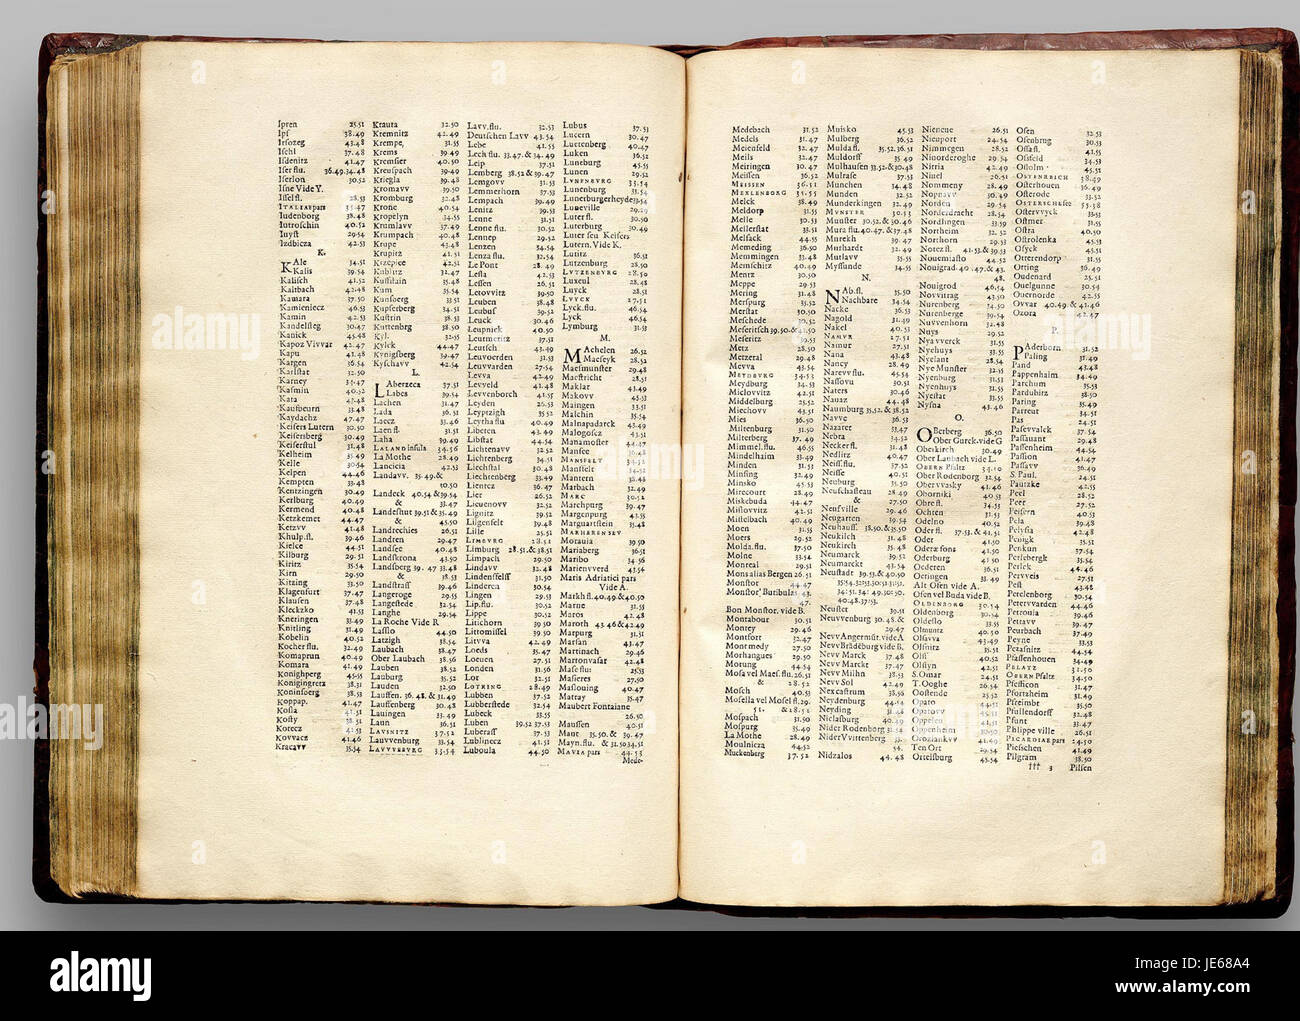 Ipren 25.51
Ipf 38.49
Irsozeg 43.48
Ischl 37.48
Isdenitz 41.47
Iser flu. 36.49.34.48
Iserlon 30.52
Isne Vide Y.
Issel fl. 28.53
ITALIAE pars 35.47
Iudenborg 38.48
Iutroschin 40.52
Iuyst 29.54
Izdbicza 42.53
K.
KAle 34.51
Kalis 39.54
Kalisch 41.51
Kaltbach 42.48
Kamara 37.50
Kamieniecz 46.53
Kamin 42.53
Kandelsteg 30.47
Kanick 45.48
Kapoz Vivvar 42.47
Kapu 41.48
Kargen 36.54
Karlstat 32.50
Karney 35.47
Kasmin 40.52
Kata 47.48
Kaufbeurn 33.48
Kaydachz 47.47
Keisers Lutern 30.50
Keisersberg 30.49
Keiserstul 31.48
Kelheim 35.49
Kelle 30.54
Kelpen 44.46
Kempten 33.48
Kentzingen 30.49
Kerlburg 40.49
Kermend 40.48
Ketzkemet 44.47
Kerzvv 41.48
Khulp.fl. 39.46
Kielce 44.51
Kilburg 29.51
Kiritz 35.54
Kirn 29.50
Kitzing 33.50
Klagenfurt 37.47
Klausen 37.48
Kleckzko 41.53
Kneringen 33.49
Knitling 31.49
Kobelin 40.52
Kocher flu. 32.49
Komaprun 40.49
Komara 41.49
Konighperg 45.55
Konigingretz 38.51
Koninsoerg 38.53
Koppap. 41.47
Kosla 41.51
Kosty 38.51
Kotecz 41.51
Kovvacz 41.46
Kracavv 35.54
Krauta 32.50
Kremnitz 42.49
Krempe, 31.55
Krems 39.49
Kremsier 40.50
Kreuspach 39.49
Kriegla 39.48
Kromavv 39.50
Kromburg 32.48
Krone 40.54
Kropelyn 34.55
Krumlavv 37.49
Krumpach 40.48
Krupe 43.48
Krupitz 41.51
Krzepice 42.51
Kublitz 32.47
Kuffstain 34.48
Kum 35.54
Kunsberg 33.51
Kupferberg 34.51
Kustrin 38.53
Kuttenberg 38.50
Kyl. 32.55
Kylek 44.47
Kynigsberg 39.47
Kyschavv 42.54
L.
LAberzeca 37.51
Labes 39.54
Lachen 31.47
Lada 36.51
Laecz 33.46
Laen fl. 31.51
Laha 39.49
LALAND insula 34.56
La Mothe 28.49
Lancicia 42.53
Landavv. 35.49.&
30.50
Landeck 40.54 & 39.54
33.47
Landeshut 39.51 & 35.49
&
45.50
Landrechies 26.51
Landren 29.47
Landsee 40.48
Landskrona 43.50
Landsberg 39.47 33.48
& 38.53
Landstrass 39.46
Langeroge 29.55
Langestede 32.54
Langhe 29.54
La Roche Vide R
Laslo 44.50
Latzigh 38.54
Laubach 40.48
Ober Laubach 38.56
Lauben 38.52
Lauburg 35.52
Lauden 32.50
Lauffen. 36.48. & 31.49
Lauffenberg 30.48
Lauingen 33.49
Laun 36.51
LAVSNITZ 37.52
Lauvvenburg 33.54
LAVVVBVRG 33.54
Lavv.flu. 32.53
Deutschen Lavv 43.54
Lebe 41.55
Lech flu. 33.47. & 34.49
Leip 37.52
Lemberg 38.52 & 39.47
Lemgovv 31.53
Lemmerhorn 37.51
Lempach 39.49
Lenitz 39.53
Lenne flu. 30.51
Lennep 29.52
Lenza flu. 35.54
Le Pont 28.49
Lesla 42.53
Lessen 26.51
Letovvitz 39.50
Leuben 38.48
Leubus 39.52
Leuck 30.46
Leupnick 40.50
Leutmeritz 37.51
Leutsch 43.49
Leuvoerden 31.53
Leuvvarden 27.54
Levva 42.49
Levveld 41.48
Levvenborch 41.55
Leyden 26.53
Leyptzigh 35.52
Leytha flu 40.49
Liberen 43.49
Libstat 44.54
Lichtenavv 32.51
Lichtenberg 34.51
Liechstal 30.48
Liechtenberg 33.49
Lientez 36.47
Lier 26.52
Lieuenovv 37.53
Lignitz 39.52
Ligenselt 39.48
Lille 25.51
LIMBVRG 28.51
Limburg 28.51. & 38.51
Limpach 29.50
Lindavv 32.48
Lindensfelss 31.50
Linderea 30.54
Lingen 29.53
Lip.flu. 30.52
Lippe 30.52
Litichorn 39.50
Littomissel 39.50
Litvva 42.49
Loeds 35.47
Loeuen 27.51
Londen 31.56
Lor 32.51
LOTRING 28.49
Lubben 37.52
Lubberstede 32.54
Lubeck 33.55
Luben 39.52 37.53
Luberass 37.53
Lublinecz 41.51
Luboula 44.50
Lubus 37.53
Lucern 30.47
Luetenberg 40.47
Luken 36.51
Luneburg 45.55
Lunen 29.52
LVNENBVRG 35.54
Lunenburg 31.54
Lunerburgerheyde 33.54
Luneville 29.49
Luter fl. 30.49
Luterburg 30.49
Luter seu Keisers
Lutern. Vide K.
Lutitz 36.51
Lutzenburg 28.50
LVTZENBVRG 28.50
Luxeul 28.48
Luyck 28.51
LVYCK 27.51
Lyck.flu. 46.54
Lyck 46.54
Lymburg 31.53
M.
MAchelen 26.52
Maeseyk 28.52
Maesmunster 29.48
Maestricht 28.51
Maklar 43.49
Makovv 45.53
Maingen 33.51
Malchin 35.54
Malnapadarck 43.49
Malogoscz 43.51
Manamoster 44.47
Mansee 36.48
MANSFELT 34.52
Mansfelt 34.52
Mantern 38.48
Marbach 32.49
MARC 30.52
Marchpurg 39.47
Margenpurg 41.55
Marguartstein 35.48
MARHERENSEV
Morauia 39.50
Mariaberg 36.51
Maribo 34.56
Marienvverd 43.54
Maris Adriatici pars
Vide A.
Markh fl. 40.49. & 40.50
Marne 31.55
Maros 42.48
Maroth 43.46 & 42.49
Marpurg 31.51
Marsan 43.47
Martinach 29.46
Martonvasar 42.48
Mase flu 25.53
Maseres 27.50
Maslouing 40.47
Mattay 35.47
Maubert Fontaiane
26.50
Maussen 40.51
Maut 35.50. & 39.47
Mayn.flu. & 32.50 34.51
MAVIA pars 44.53
Mede-
Medebach 31.52
Medels 31.47
Meienfeld 32.47
Meils 32.47
Meiringen 30.47
Meissen 36.52
MEISSEN 36.51
MEKLENBORG 35.55
Melck 38.49
Meldorp 31.55
Melle 30.53
Mellerstat 33.51
Melsack 44.55
Memeding 36.50
Memmingen 33.48
Memschitz 40.49
Mentz 30.50
Meppe 29.53
Mering 31.48
Merspurg 35.52
Merstat 30.50
Meschede 30.52
Meseritsch 39.50 & 41.50
Meseritz 39.53
Metz 28.50
Metzeral 29.48
Mevva 43.54
MEYDBVRG 34.53
Meydburg 34.53
Miclovvitz 42.51
Middelburg 25.52
Miechovv 43.51
Mies 36.50
Miltenburg 31.50
Milterberg 37.49
Mimmel.flu. 46.55
Mindelhaim 33.49
Minden 31.53
Minsing 32.49
Minsko 45.53
Mirecourt 28.49
Miskebuda 44.47
Mislovvitz 42.51
Mittelbach 40.49
Moen 31.55
Moers 29.52
Molda.flu. 37.50
Molne 33.54
Monreal 29.51
Mons alias Bergen 26.51
Monstor 44.47
Monstor' Buribulas 43.
47.
Bon Monstor. vide B.
Montabour 30.51
Montey 29.46
Montfort 32.47
Montmedy 27.50
Morhangues 29.50
Morung 44.54
Mosa vel Maes. flu. 26.51
& 28.52
Mosch 40.53
Mosella vel Mosel fl. 29.
51. & 28.51
Mospach 31.50
Mospurg 35.49
La Mothe 28.49
Moulnicza 44.52
Muckenberg 37.52
Muisko 45.53
Mulberg 36.52
Mulda fl. 35.52. 36.51
Muldorff 35.49
Mulhausen 33.52. & 30.48
Mulrase 37.53
Munchen 34.48
Munden 32.52
Munderkingen 32.49
MVNSTER 30.53
Munster 30.52. & 30.46
Mura flu. 40.47. & 37.48
Murekh 39.47
Murhardt 32.49
Mutlavv 35.55
Myssunde 34.55
N.
NAb.fl. 35.50
Nachbare 34.54
Nacke 36.53
Nagold 31.49
Nakel 40.53
NAMVR 27.51
Namur 27.51
Nana 43.48
Nancy 28.49
Narevv fl. 45.54
Nassovu 30.51
Naters 30.46
Nauaz 44.48
Naumburg 35.52. & 38.52
Navve 36.53
Nazaret 33.47
Nebra 34.52
Necker fl. 31.48
Nedlitz 40.47
Neiss.flu. 37.51
Neisse 40.51
Neuburg 35.50
Neuschasteau 28.49
& 27.50
Neufville 29.46
Neugarten 39.54
Neuhauss. 38.50. & 35.50
Neukilch 31.48
Neukirch 35.48
Neumarck 39.52
Neumarckt 43.54
Neustadt 39.53. & 40.50
35:54.32:53.30:51.31:
34:51.34:49.30:50.
40:48.37:53.
Neuster 39.51
Neuvvenburg 30.48. &
29.47
Nevv Angermüst.vide A
Nevv Brädēburg vide B.
Nevv Marck 37.48
Nevv Marckt 37.47
Nevv Milhn 38.53
Nevv Sol 42.49
Nexcastrum 38.56
Neydenburg 44.54
Neyding 31.48
Niclasburg 40.49
Nider Rodenborg 31.54
Nider Vvittenberg 33.
54.
Nidzalos 44.48
Nieneue 26.51
Nieuport 24.54
Nimmegen 28.52
Niuorderoghe 29.54
Nitria 42.49
Niuel 26.51
Nommeny 28.49
Noppavv 30.49
Norden 29.54
Norderdracht 28.54
Nordlingen 33.59
Northeim 32.52
Northorn 29.53
Notez.fl. 41.53. & 39.53
Nouemiasto 44.52
Nouigrad 40.47. & 43.
48.
Nouigrod 46.54
Novvitrag 43.50
Nurenberg 34.50
Nurenberge 39.54
Nuvvenhorn 32.48
Nuys 29.52
Nya vverck 31.55
Nyehuys 31.55
Nyelant 28.54
Nye Munster 32.55
Nyenburg 31.51
Nyenhuys 31.55
Nyestat 31.55
Nysna 43.46
O.
OBerberg 36.50
Ober Gurck. vide G
Obeskirch 30.49
Ober Laubach vide L.
OBERN Pfaltz 34.50
Ober Rodenborg 32.54
Obervvasky 41.46
Oborniki 40.53
Obre fl. 39.53
Ochten 31.51
Odelno 40.52
Oder fl. 37.53. & 41.51
Oder 41.50
Oderæ fons 41.50
Oderburg 38.50
Oederen 36.51
Oetingen 33.49
Alt Ofen vide A.
Ofen vel Buda vide B.
OLDENBORG 30.54
Oldenborg 30.54
Oldeslo 33.55
Olmuntz 40.50
Olsavva 43.49
Olsnitz 35.51
Olss 40.52
Olstyn 42.51
S. Omar 24.51
T. Ooghe 26.54
Oostende 25.52
Opato 44.51
Opatovv 45.51
Oppelen 41.51
Oppenheim 30.50
Oroziankvv 44.48
Ten Ort 29.54
Ortelsburg 45.54
Osen 32.53
Osenbrug 30.53
Ossa fl. 41.55
Ossfeld 34.53
Ostolm 34.53
OSTENREICH 38.49
Osterhouen 36.49
Osterode 43.54
OSTERSCHE see 35.58
Ostervvyck 31.53
Ostmer 31.55
Ostra 40.50
Ostrolenka 45.51
Osyck 45.51
Otterendorp 31.55
Otting 36.49
Oudenard 25.51
Ouelgunne 30.54
Ouernorde 42.55
Ovvar 40.49. & 41.46
Ozora 42.47
P.
PAderborn 31.52
Paling 31.49
Pand 43.48
Pappenhaim 34.49
Parchum 35.54
Pardubitz 38.50
Paring 35.49
Parreut 34.51
Pas 24.51
Pasevalck 37.54
Passauant 29.48
Passenheim 44.54
Passion 41.47
Passavv 36.49
S. Paul. 24.51
Pautzke 42.55
Peel 28.52
Peer 28.52
Peisern 40.53
Pela 39.48
Pelysa 45.54
Penigk 35.51
Penkun 37.54
Perlebergk 34.54
Perlek 44.55
Pervveis 27.51
Pest 43.48
Petelenborg 30.54
Petervvarden 44.46
Petouia 39.47
Petravv 39.47
Peurbach 37.49
Peyne 33.53
Petasnitz 44.54
Pfassenhouen 34.49
PFALTZ 31.50
OBERN Pfaltz 34.50
Pfefficon 31.47
Pfortzheim 31.49
Pfreimbt 35.50
Pfullendorff 32.48
Pfunt 31.49
Philippe ville 26.51
PICARDIAE pars 24.50
Pieschen 41.49
Pilgram 38.50
††† 3 Pilsen
alamy
JE68A4
www.alamy.com